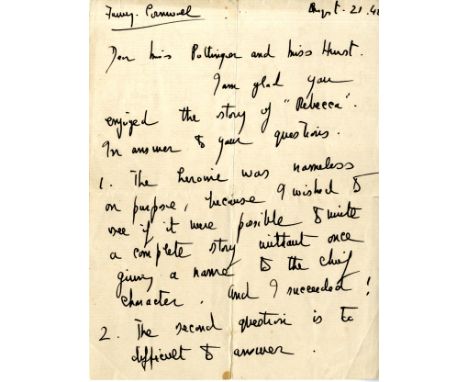 Fowey. Cornwall
August. 21. 40
Dear Miss Pottinger and Miss Hurst.
I am glad you
enjoyed the story of "Rebecca".
In answer to your questions.
1. The heroine was nameless
on purpose, because I wished to
see if it were possible to write
a complete story without once
giving a name to the chief
character. And I succeeded!
2. The second question is to
difficult to answer.